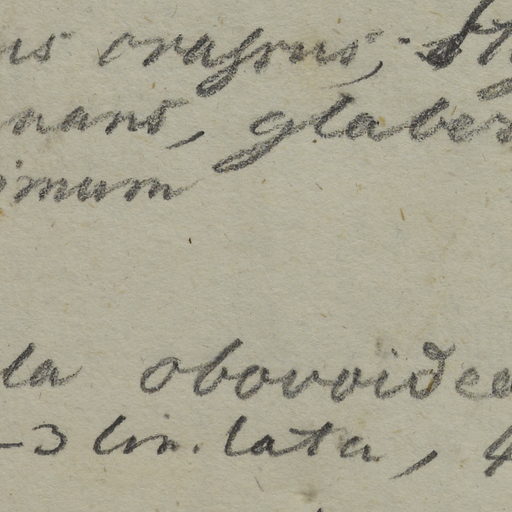 us crassus, St
nans, glaber
imum
la obovoidea
-3 lin. lata, 4